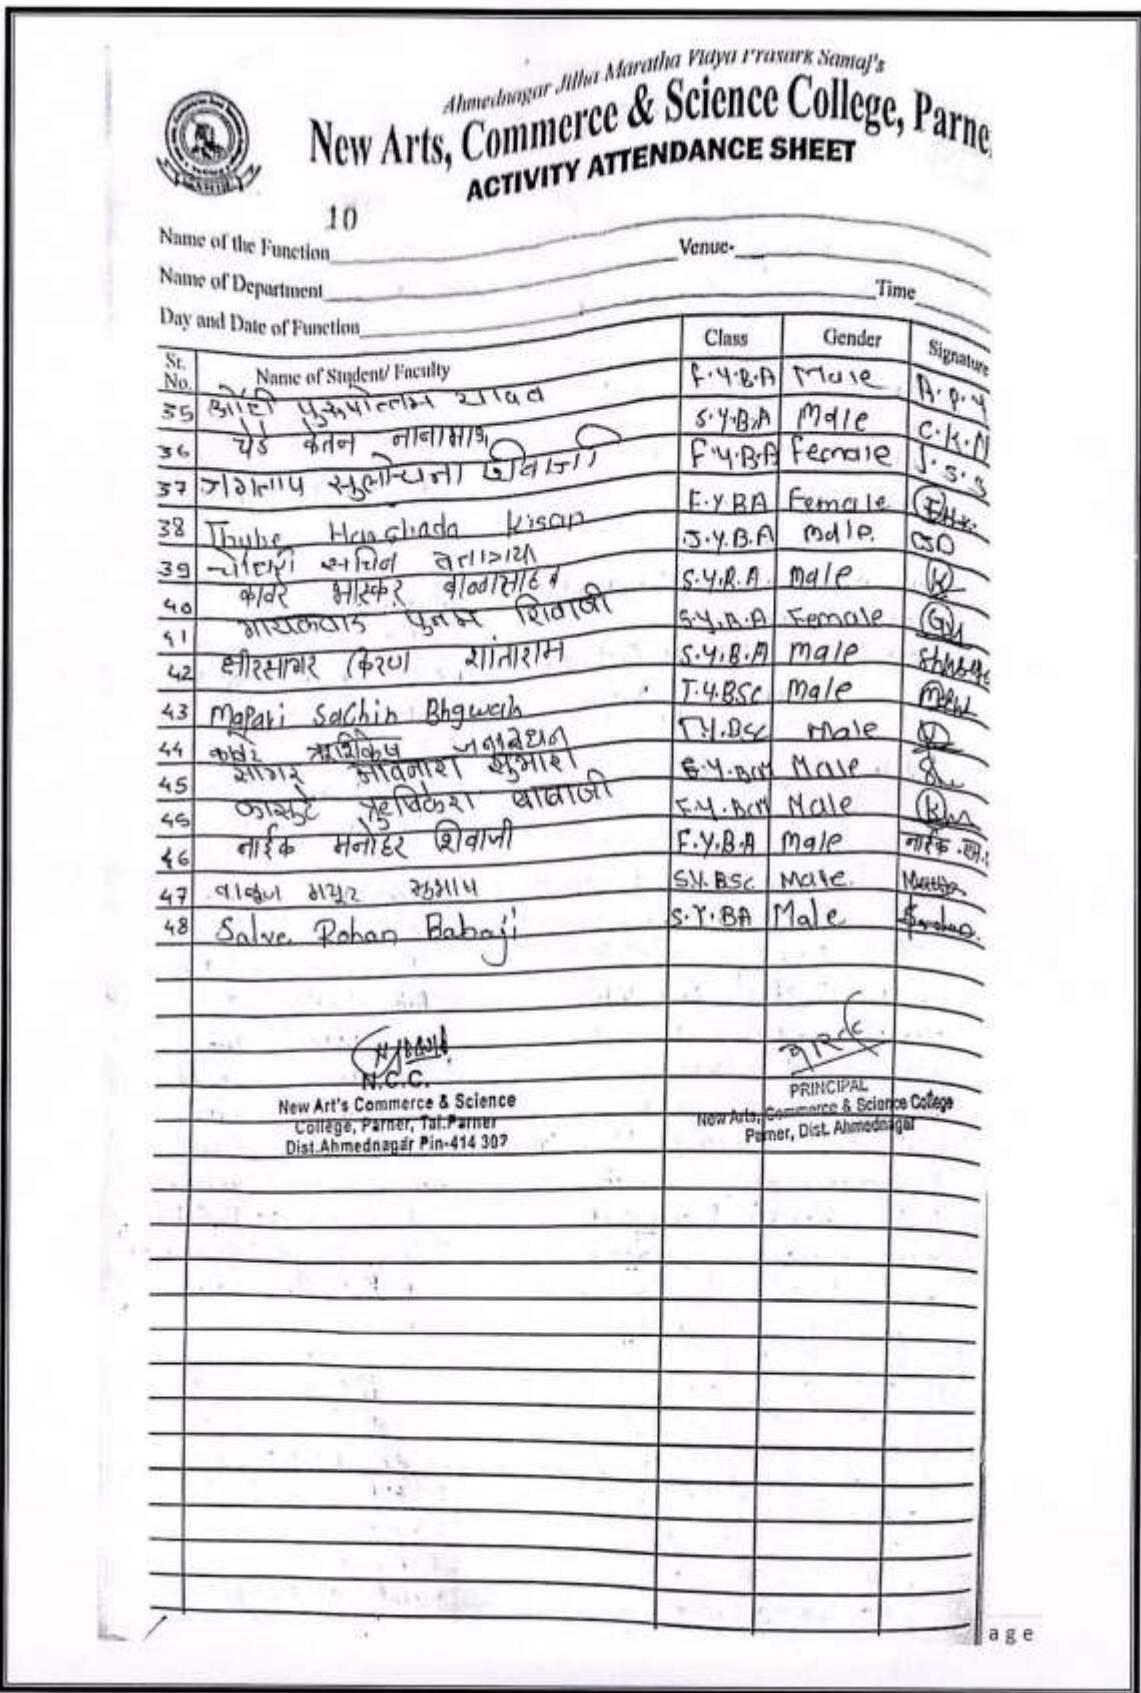 Ahmednagar Jilha Maratha Vidya Prasark Samaj's
New Arts, Commerce & Science College, Parner
ACTIVITY ATTENDANCE SHEET
10
Name of the Function Venue-
Name of Department
Day and Date of Function Time
Sr. No. Name of Student/ Faculty Class Gender Signature
35 पुरुषोत्तम F.Y.B.A Male A.P.
36 केतन S.Y.B.A Male C.K.N
37 जगताप सुलोचना शिवाजी F.Y.B.A Female J.S.S
38 Thube Kisan F.Y BA Female
39 चौधरी सचिन Male
40 कावरे भास्कर बाळासाहेब S.Y.B.A. Male
41 गायकवाड पुनम शिवाजी S.Y.B.A Female
42 क्षीरसागर किरण शांताराम S.Y.B.A Male
43 Mapari Sachin Bhgwan T.Y.BSc Male
44 कावरे T.Y.BSc Male
45 सुभाष Male
45 बाबाजी F.Y. Male
46 नाईक मनोहर शिवाजी F.Y.B.A Male नाईक
47 मयुर सुभाष S.Y. BSC Male
48 Salve Rohan Babaji S.Y.BA Male
N.C.C.
New Art's Commerce & Science
College, Parner, Tal.Parner
Dist.Ahmednagar Pin-414 307
PRINCIPAL
New Arts, Commerce & Science College
Parner, Dist. Ahmednagar
age